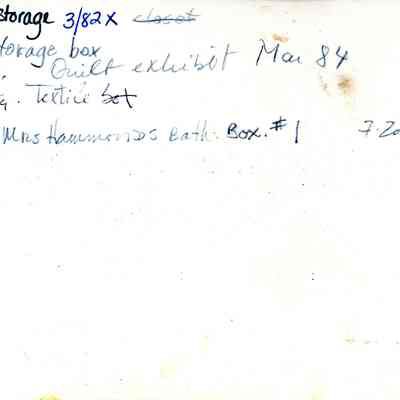 storage 3/82 X closet
torage box
Quilt exhibit Mar 84
Textile bot
Mrs Hammonds Bath. Box. #1 7-20